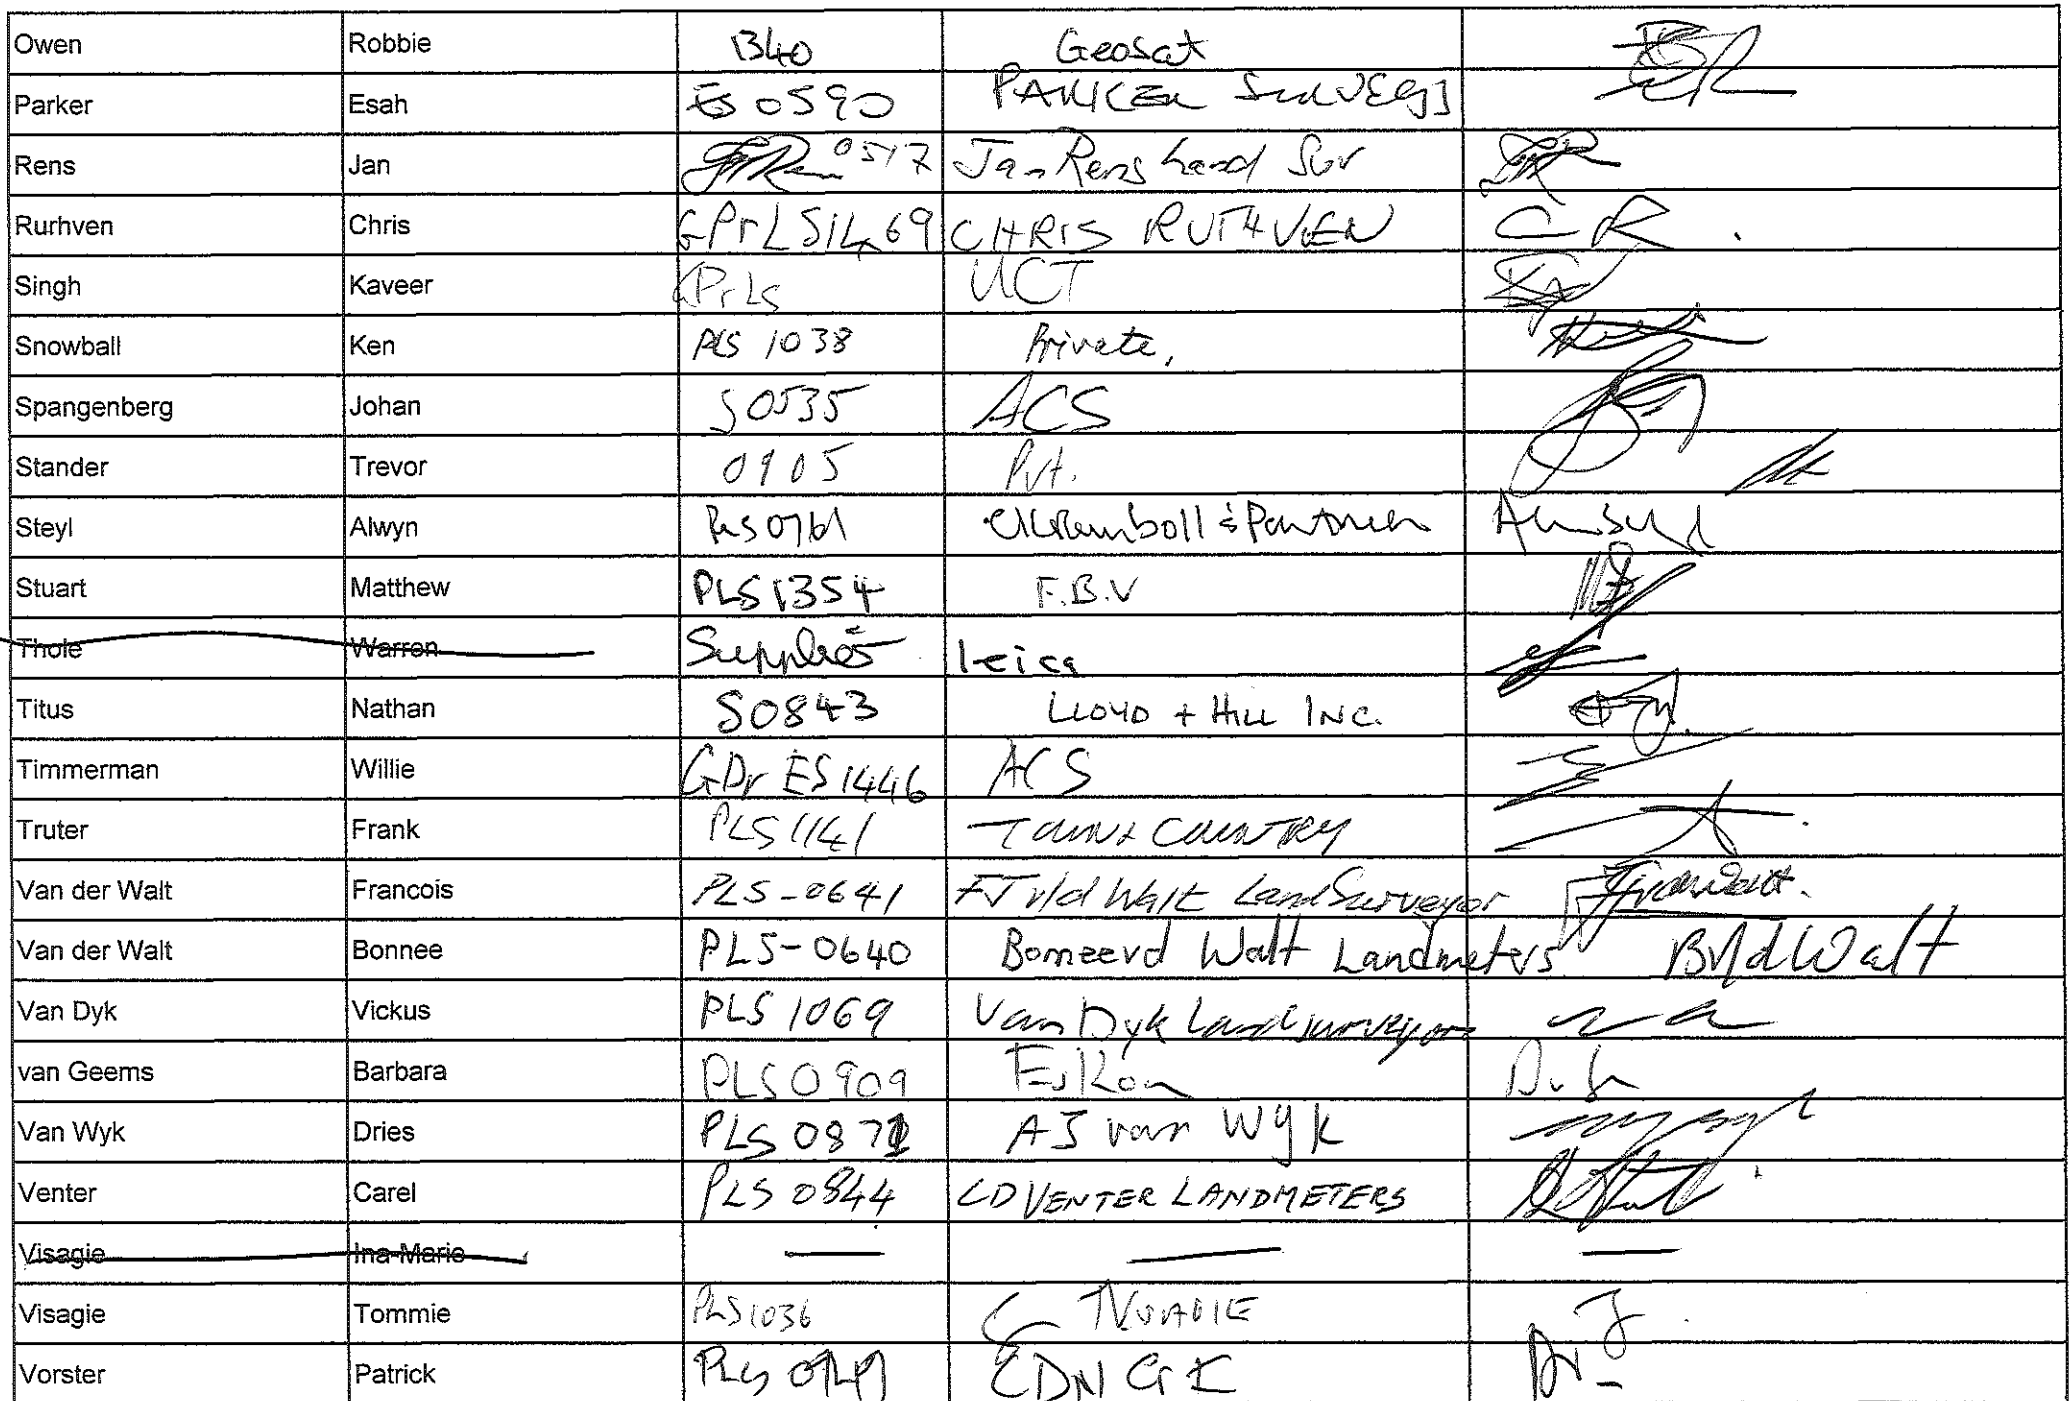 Owen Robbie 1340 Geosat
Parker Esah ES 0590 PARKER SURVEYS
Rens Jan 0517 Jan Rens Land Sur
Rurhven Chris GPrLS1469 CHRIS RUTHVEN CR
Singh Kaveer GPrLS UCT
Snowball Ken PLS 1038 Private,
Spangenberg Johan S0535 ACS
Stander Trevor 0905 Pvt.
Steyl Alwyn PLS0761 & Partners
Stuart Matthew PLS1354 F.B.V
Thole Warren Supplier Leica
Titus Nathan S0843 LLOYD + HILL INC.
Timmerman Willie GPr ES 1446 ACS
Truter Frank PLS1141 TOWN & COUNTRY
Van der Walt Francois PLS-0641 FJ v/d Walt Land Surveyor
Van der Walt Bonnee PLS-0640 Bonnee vd Walt Landmeters BvldWalt
Van Dyk Vickus PLS 1069 Van Dyk Landsurveyors
van Geems Barbara PLS0909 Eskom
Van Wyk Dries PLS 0872 AJ van Wyk
Venter Carel PLS 0844 CD VENTER LANDMETERS
Visagie Ina-Marie
Visagie Tommie PLS1036 TVISAGIE
Vorster Patrick PLS